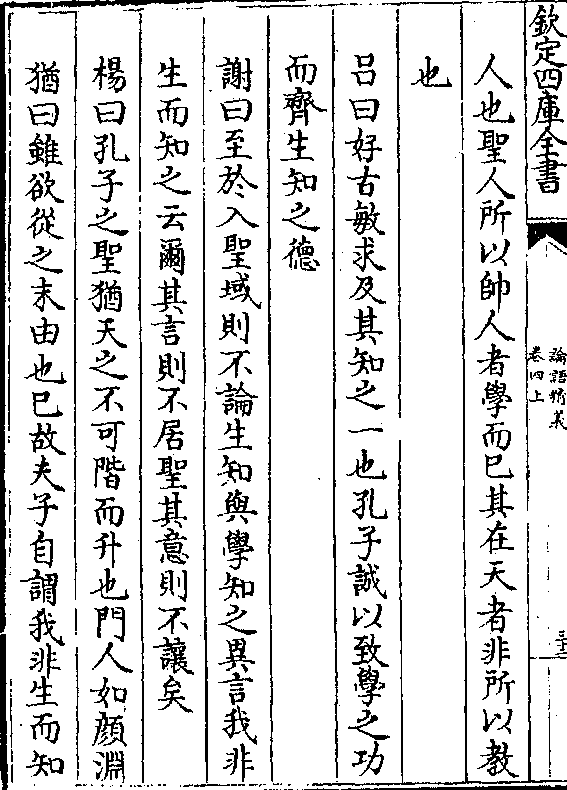 欽定四庫全書
論語精義
卷四上
三十三
人也聖人所以帥人者學而已其在天者非所以教
也
吕曰好古敏求及其知之一也孔子誠以致學之功
而齊生知之德
謝曰至於入聖域則不論生知與學知之異言我非
生而知之云爾其言則不居聖其意則不讓矣
楊曰孔子之聖猶天之不可階而升也門人如顔淵
猶曰雖欲從之末由也已故夫子自謂我非生而知